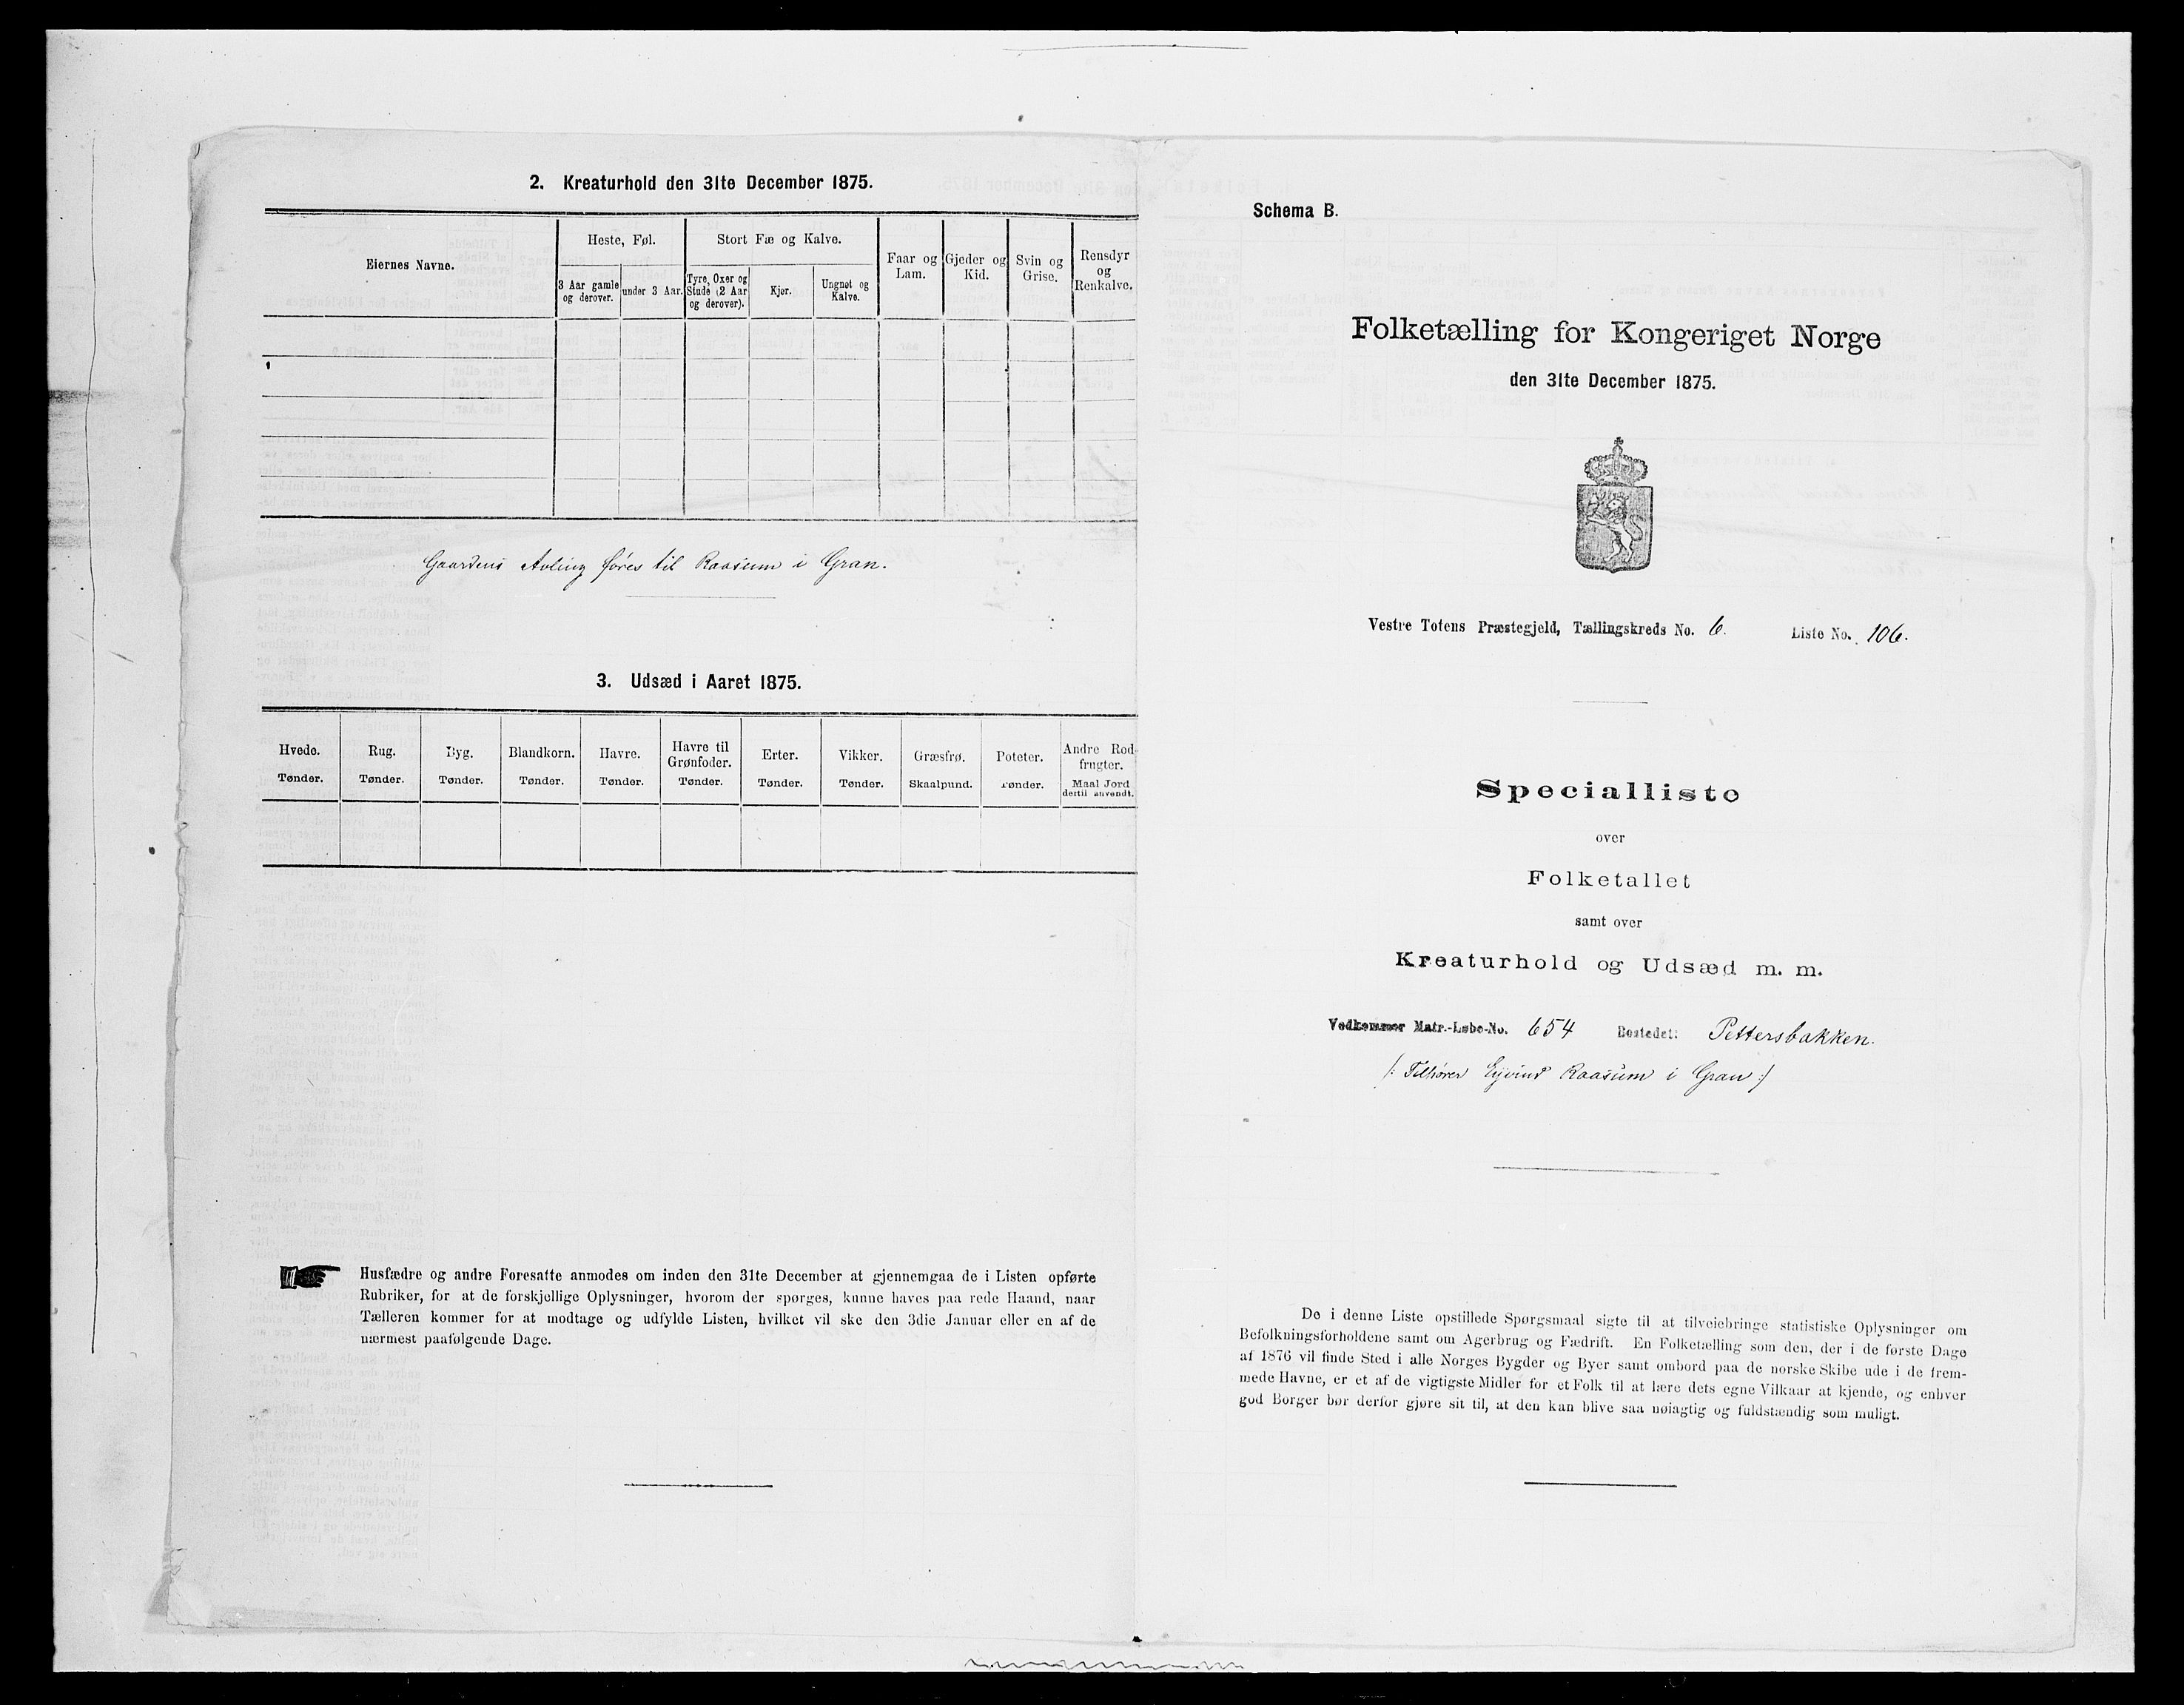 2. Kreaturhold den 31te December 1875.
Eiernes Navne.
Heste, Føl.
Stort Fæ og Kalve.
Faar og
Lam.
Gjeder og
Kid.
Svin og
Grise.
Rensdyr
og
Renkalve.
3 Aar gamle
og derover.
under 3 Aar.
Tyre, Oxer og
Stude (2 Aar
og derover).
Kjør.
Ungnøt og
Kalve.
Gaardens Avling føres til Raasum i Gran.
3. Udsæd i Aaret 1875.
Hvede.
Tønder.
Rug.
Tønder.
Byg.
Tønder.
Blandkorn.
Tønder.
Havre.
Tønder.
Havre til
Grønfoder.
Tønder.
Erter.
Tønder.
Vikker.
Tønder.
Græsfrø.
Skaalpund.
Poteter.
Tønder.
Andre Rod-
frugter.
Maal Jord
dertil anvendt.
Husfædre og andre Foresatte anmodes om inden den 31te December at gjennemgaa de i Listen opførte
Rubriker, for at de forskjellige Oplysninger, hvorom der spørges, kunne haves paa rede Haand, naar
Tælleren kommer for at modtage og udfylde Listen, hvilket vil ske den 3die Januar eller en af de
nærmest paafølgende Dage.
Schema B.
Folketælling for Kongeriget Norge
den 31te December 1875.
Vestre Totens Præstegjeld, Tællingskreds No. 6. Liste No. 106.
Specialliste
over
Folketallet
samt over
Kreaturhold og Udsæd m. m.
Vedkommer Matr.-Løbe-No. 654 Bostedet: Pettersbakken.
/: Tilhører Eyvind Raasum i Gran :/
De i denne Liste opstillede Spørgsmaal sigte til at tilveiebringe statistiske Oplysninger om
Befolkningsforholdene samt om Agerbrug og Fædrift. En Folketælling som den, der i de første Dage
af 1876 vil finde Sted i alle Norges Bygder og Byer samt ombord paa de norske Skibe ude i de frem-
mede Havne, er et af de vigtigste Midler for et Folk til at lære dets egne Vilkaar at kjende, og enhver
god Borger bør derfor gjøre sit til, at den kan blive saa nøiagtig og fuldstændig som muligt.